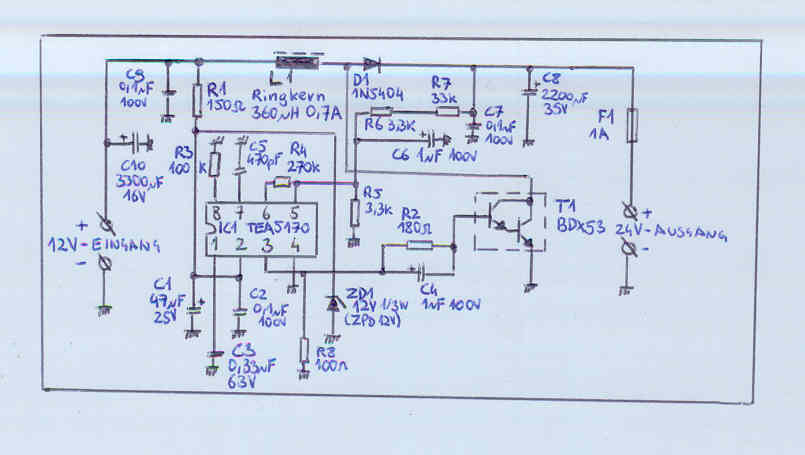 C9
0,1µF
100V
R1
150Ω
L1
Ringkern
360µH 0,7A
D1
1N5404
R7
33K
C8
2200µF
35V
F1
1A
C10
3300µF
16V
R3
100
K
C5
470pF
R4
270K
R6 3,3K
C6 1µF 100V
C7
0,1µF
100V
R5
3,3K
R2
180Ω
T1
BDX53
8 7 6 5
IC1 TEA5170
1 2 3 4
+
12V-EINGANG
-
+
24V-AUSGANG
-
C4
1µF 100V
C1
47µF
25V
C2
0,1µF
100V
C3
0,33µF
63V
ZD1
12V 1/3W
(ZPD 12V)
R8
100Ω